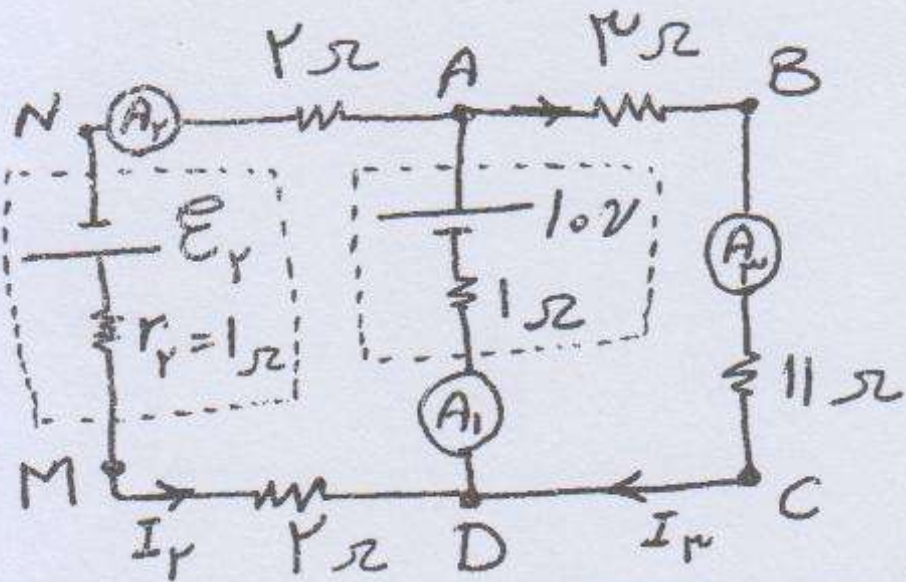 ۲Ω A ۳Ω B
N A۲
ε۲ ۱۰v
r۲=۱Ω ۱Ω A۳
A۱ ۱۱Ω
M I۲ ۲Ω D I۳ C